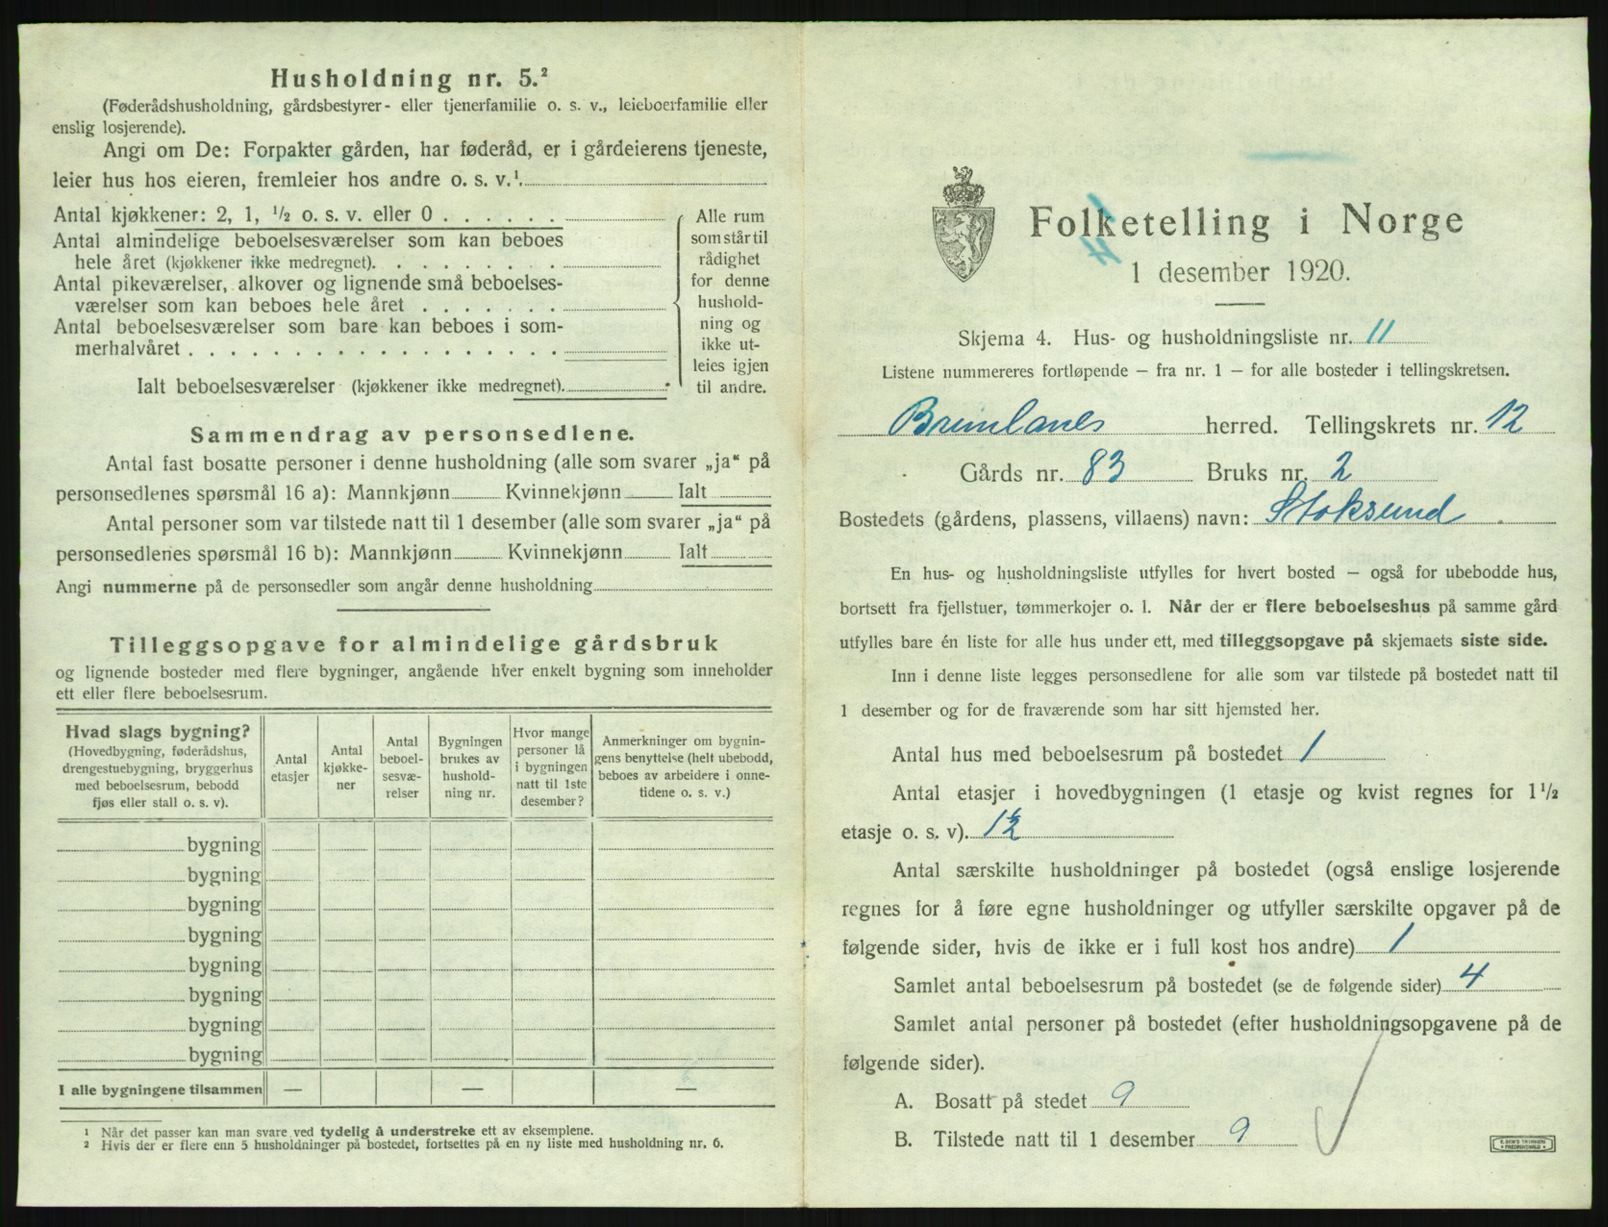 Husholdning nr. 5.²
(Føderådshusholdning, gårdsbestyrer- eller tjenerfamilie o. s. v., leieboerfamilie eller
enslig losjerende).
Angi om De: Forpakter gården, har føderåd, er i gårdeierens tjeneste,
leier hus hos eieren, fremleier hos andre o. s. v.¹
Antal kjøkkener: 2, 1, ½ o. s. v. eller 0
Antal almindelige beboelsesværelser som kan beboes
hele året (kjøkkener ikke medregnet).
Antal pikeværelser, alkover og lignende små beboelses-
værelser som kan beboes hele året
Antal beboelsesværelser som bare kan beboes i som-
merhalvåret
Ialt beboelsesværelser (kjøkkener ikke medregnet).
Alle rum
som står til
rådighet
for denne
hushold-
ning og
ikke ut-
leies igjen
til andre.
Sammendrag av personsedlene.
Antal fast bosatte personer i denne husholdning (alle som svarer „ja“ på
personsedlenes spørsmål 16 a): Mannkjønn Kvinnekjønn Ialt
Antal personer som var tilstede natt til 1 desember (alle som svarer „ja“ på
personsedlenes spørsmål 16 b): Mannkjønn Kvinnekjønn Ialt
Angi nummerne på de personsedler som angår denne husholdning
Tilleggsopgave for almindelige gårdsbruk
og lignende bosteder med flere bygninger, angående hver enkelt bygning som inneholder
ett eller flere beboelsesrum.
Hvad slags bygning?
(Hovedbygning, føderådshus,
drengestuebygning, bryggerhus
med beboelsesrum, bebodd
fjøs eller stall o. s. v).
Antal
etasjer
Antal
kjøkke-
ner
Antal
beboel-
sesvæ-
relser
Bygningen
brukes av
hushold-
ning nr.
Hvor mange
personer lå
i bygningen
natt til 1ste
desember?
Anmerkninger om bygnin-
gens benyttelse (helt ubebodd,
beboes av arbeidere i onne-
tidene o. s. v.)
bygning
bygning
bygning
bygning
bygning
bygning
bygning
bygning
I alle bygningene tilsammen — — —
¹ Når det passer kan man svare ved tydelig å understreke ett av eksemplene.
² Hvis der er flere enn 5 husholdninger på bostedet, fortsettes på en ny liste med husholdning nr. 6.
Folketelling i Norge
1 desember 1920.
Skjema 4. Hus- og husholdningsliste nr. 11
Listene nummereres fortløpende – fra nr. 1 – for alle bosteder i tellingskretsen.
Brunlanes herred. Tellingskrets nr. 12
Gårds nr. 83 Bruks nr. 2
Bostedets (gårdens, plassens, villaens) navn: Stoksund
En hus- og husholdningsliste utfylles for hvert bosted – også for ubebodde hus,
bortsett fra fjellstuer, tømmerkojer o. l. Når der er flere beboelseshus på samme gård
utfylles bare én liste for alle hus under ett, med tilleggsopgave på skjemaets siste side.
Inn i denne liste legges personsedlene for alle som var tilstede på bostedet natt til
1 desember og for de fraværende som har sitt hjemsted her.
Antal hus med beboelsesrum på bostedet 1
Antal etasjer i hovedbygningen (1 etasje og kvist regnes for 1½
etasje o. s. v). 1½
Antal særskilte husholdninger på bostedet (også enslige losjerende
regnes for å føre egne husholdninger og utfyller særskilte opgaver på de
følgende sider, hvis de ikke er i full kost hos andre) 1
Samlet antal beboelsesrum på bostedet (se de følgende sider) 4
Samlet antal personer på bostedet (efter husholdningsopgavene på de
følgende sider).
A. Bosatt på stedet 9
B. Tilstede natt til 1 desember 9